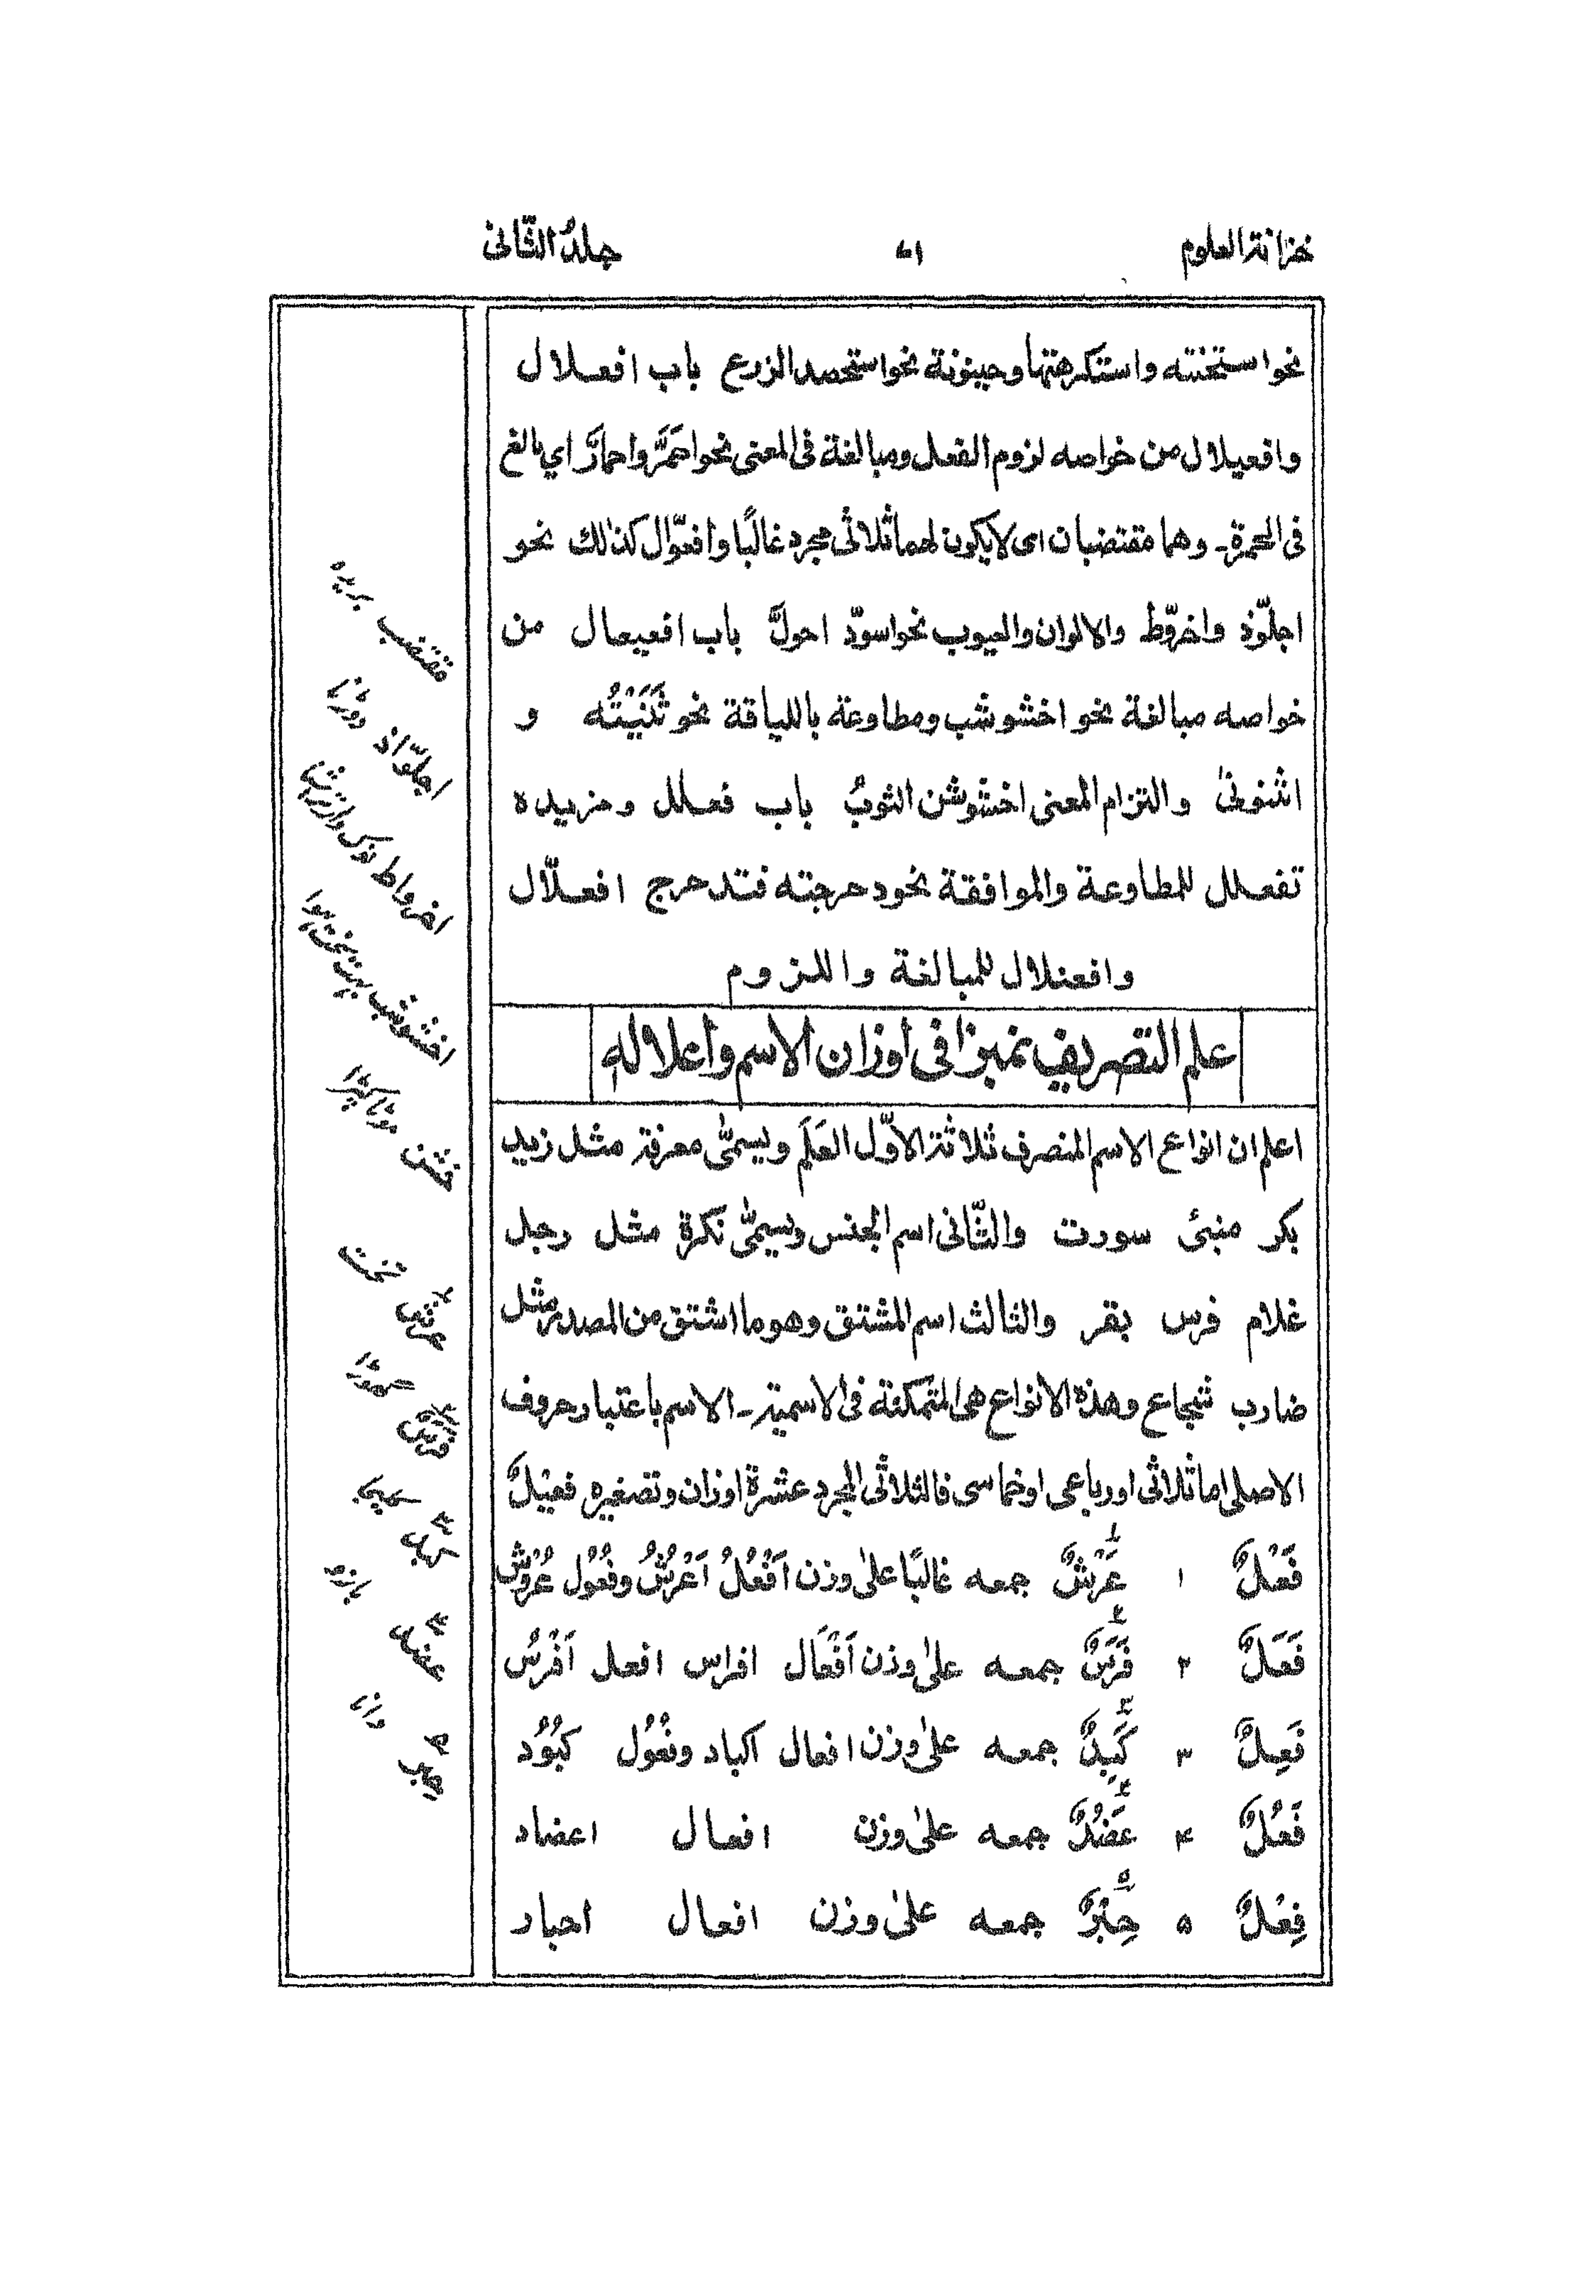 خزانة العلوم ۷۱ جلدُ الثّانى
نحو استخنته واستكرهتها وحينونة نحو استحصد الزرع باب افعلال
وافعيلال من خواصه لزوم الفعل ومبالغة فى المعنى نحو احمَرَّ واحمارَّ اي بالغ
فى الحمرة۔ وهما مقتضبان اى لا يكون لهما ثلاثى مجرد غالبًا وافعوّال كذٰلك نحو
اجلوّذ واخروّط والالوان والعيوب نحو اسودّ احولَّ باب افعيعال من
خواصه مبالغة نحو اخشوشب ومطاوعة باللياقة نحو ثَنَيْتُه و
اثنونىٰ والتزام المعنى اخشوشن الثوبُ باب فعلل ومزيده
تفعلل للمطاوعة والموافقة نحو دحرجته فتدحرج افعلّال
وافعنلال للمبالغة واللزوم
علم التصريف نمبر۲ فى اوزان الاسم واعلاله
اعلم ان انواع الاسم المنصرف ثلاثة الاوّل العَلَم ويسمّٰى معرفة مثل زيد
بكر منبئ سورت والثّانى اسم الجنس ويسمّٰى نكرة مثل رجل
غلام فرس بقر والثالث اسم المشتق وهو ما اشتق من المصدر مثل
ضارب شجاع وهذه الانواع هى المتمكنة فى الاسمية۔ الاسم باعتبار حروف
الاصلى اما ثلاثى او رباعى او خماسى فالثلاثى المجرد عشرة اوزان وتصغيره فعيْلٌ
فَعْلٌ ۱ عَرْشٌ جمعه غالبًا علىٰ وزن اَفْعُلُ اَعْرُشُ وفُعُول عُرُوش
فَعَلٌ ۲ فَرَسٌ جمعه علىٰ وزن اَفْعَال افراس افعل اَفْرُس
فَعِلٌ ۳ كَبِدٌ جمعه علىٰ وزن افعال اكباد وفُعُول كبُوُد
فَعُلٌ ۴ عَضُدٌ جمعه علىٰ وزن افعال اعضاد
فِعْلٌ ۵ حِبْرٌ جمعه علىٰ وزن افعال احبار
مقتضب بريده
اجلوّاذ
اخرواط
اخشوشب
خشن
عرش تخت
فرس گھوڑا
كبد كليجہ
عضد بازو